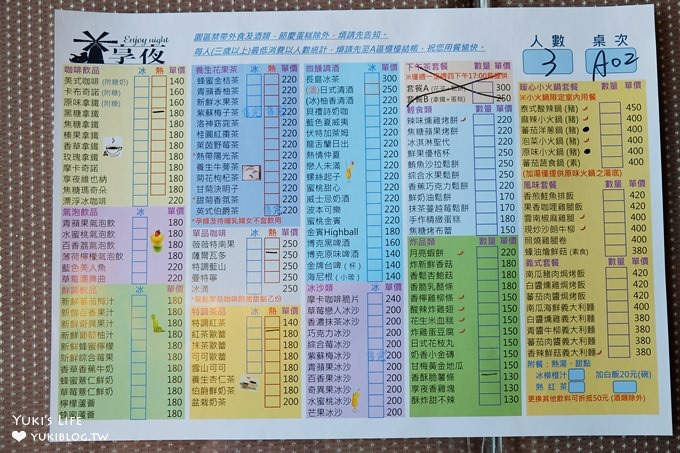 Enjoy night
享夜
園區禁帶外食及酒類、節慶蛋糕除外，煩請先告知。
每人(三歲以上)最低消費以人數統計，煩請先至A區櫃檯結帳，祝您用餐愉快。
人數 桌次
3 A02
咖啡飲品 冰 熱 單價
美式咖啡(附糖奶) 140
卡布奇諾(附糖) 160
原味拿鐵(附糖) 160
焦糖拿鐵 180
榛果拿鐵 180
香草拿鐵 180
玫瑰拿鐵 180
摩卡奇諾 180
享夜維也納 180
焦糖瑪奇朵 180
漂浮冰咖啡 220
氣泡飲品 冰 單價
青蘋果氣泡飲 180
水蜜桃氣泡飲 180
百香荔氣泡飲 180
薄荷檸檬氣泡飲 180
藍色美人魚 220
草莓圓舞曲 220
鮮調飲品 冰 單價
新鮮蕃茄梅汁 180
新鮮百香果汁 180
新鮮奇異果汁 180
新鮮葡萄柚汁 180
新鮮蜂蜜檸檬 180
新鮮綜合莓果 180
香草香蕉牛奶 180
蜂蜜薏仁鮮奶 180
草莓薏仁鮮奶 180
檸檬蘆薈 180
蜂蜜蘆薈 180
養生花果茶 冰 熱 單價
蜂蜜金桔茶 220
青蘋香柚茶 220
新鮮水果茶 220
紫蘇梅子茶 220
洛神窈窕茶 220
桂圓紅棗茶 220
萊茵野莓茶 220
*熱帶陽光茶 220
養生牛蒡茶 220
菊花枸杞茶 220
甘菊決明子 220
*甜菊香氛茶 220
英式伯爵茶 220
*孕婦及待哺乳婦女不宜飲用
單品咖啡 冰 熱 單價
薇薇特南果 250
薩爾瓦多 250
特調藍山 250
曼特寧 250
冰滴 250
特調茶品 冰 熱 單價
特調紅茶 140
紅茶歐蕾 180
抹茶歐蕾 180
可可歐蕾 180
雪山可可 180
養生杏仁茶 180
伯爵鮮奶茶 200
盆栽奶茶 200
微醺調酒 單價
長島冰茶 300
(溫)日式清酒 250
(冰)柚香清酒 250
貝禮詩奶咖 220
藍色夏威夷 220
伏特加萊姆 220
龍舌蘭日出 220
熱情仲夏 220
戀人未滿 220
螺絲起子 220
蜜桃甜心 220
威士忌奶酒 220
波本可樂 220
蜜桃金賓 220
金賓Highball 220
博克黑啤酒 180
博克原味啤酒 140
金牌台啤(杯) 140
海尼根(小玻) 140
冰沙類 單價
摩卡咖啡脆片 240
草莓戀人冰沙 200
香濃抹茶冰沙 200
巧克力冰沙 200
綜合莓冰沙 200
紫蘇梅冰沙 200
青蘋果冰沙 200
百香果冰沙 200
奇異果冰沙 200
水蜜桃冰沙 200
芒果冰沙 200
下午茶套餐 數量 單價
*僅週一至週四下午17:00前提供
300
套餐B(拿鐵+蛋糕) 250
輕食類 數量 單價
辣味燻雞烤餅 220
焦糖蘋果烤餅 240
冰淇淋聖代 240
鮮果優格杯 240
鮪魚沙拉鬆餅 240
綜合水果鬆餅 240
香蕉巧克力鬆餅 240
鮮奶油鬆餅 170
抹茶蔓越莓鬆餅 190
手作精緻蛋糕 120
焦糖烤布蕾 100
炸品類 數量 單價
月亮蝦餅 220
炸鮮香菇 180
香鬆杏鮑菇 180
香脆乳酪條 180
香檸雞柳條 150
酸辣炸雞翅 150
花生米血糕 150
炸雞蛋豆腐 150
日式花枝丸 150
奶香小金磚 150
甘梅黃金地瓜 150
香酥脆薯條 150
享夜香雞塊 130
酥炸甜不辣 130
暖心小火鍋套餐
*小火鍋限定室內用餐
泰式酸辣鍋(豬) 450
麻辣小火鍋(豬) 400
蕃茄洋蔥鍋(豬) 400
泡菜小火鍋(豬) 400
原味小火鍋(豬) 400
蕃茄蔬食鍋(素) 400
(加湯僅提供原味火鍋之湯底)
風味套餐 數量 單價
香煎鮭魚排飯 420
果香咖哩雞腿飯 420
雲南椒麻雞腿 400
現炒沙朗牛柳 400
照燒雞腿卷 400
蠔油燴鮮菇(素食) 380
義式套餐 數量 單價
南瓜豬肉焗烤飯 420
白醬雞蓉焗烤飯 420
蕃茄肉醬焗烤飯 420
南瓜海鮮義大利麵 420
白醬燻雞義大利麵 420
青醬牛柳義大利麵 400
蕃茄肉醬義大利麵 380
香辣鮮菇義大利麵 380
附餐：熱湯、甜點
冰柳橙汁 加白飯20元(碗)
熱紅茶
更換其他飲料可折抵50元(酒類除外)
Yuki's Life
YUKIBLOG.TW